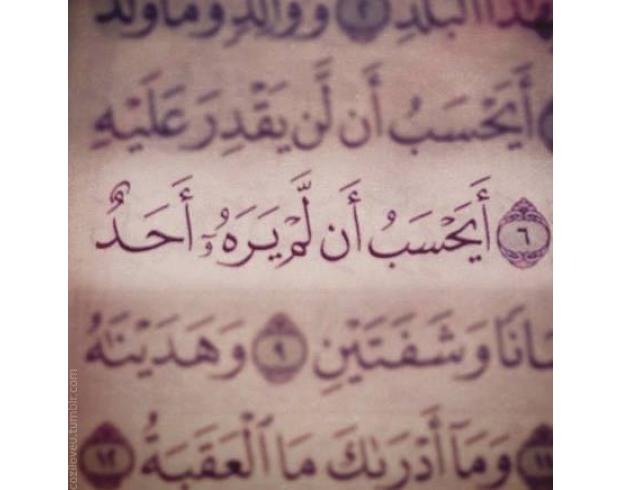 بِهَٰذَا ٱلْبَلَدِ ٢ وَوَالِدٍ وَمَا وَلَدَ
أَيَحْسَبُ أَن لَّن يَقْدِرَ عَلَيْهِ
٦ أَيَحْسَبُ أَن لَّمْ يَرَهُۥٓ أَحَدٌ
سَانًا وَشَفَتَيْنِ ٩ وَهَدَيْنَٰهُ
١١ وَمَآ أَدْرَىٰكَ مَا ٱلْعَقَبَةُ ١٢
coziloveu.tumblr.com